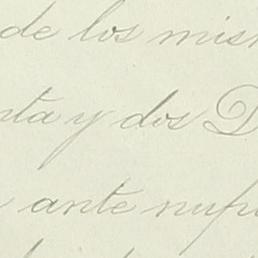 de los mism
nta y dos D
ante nup